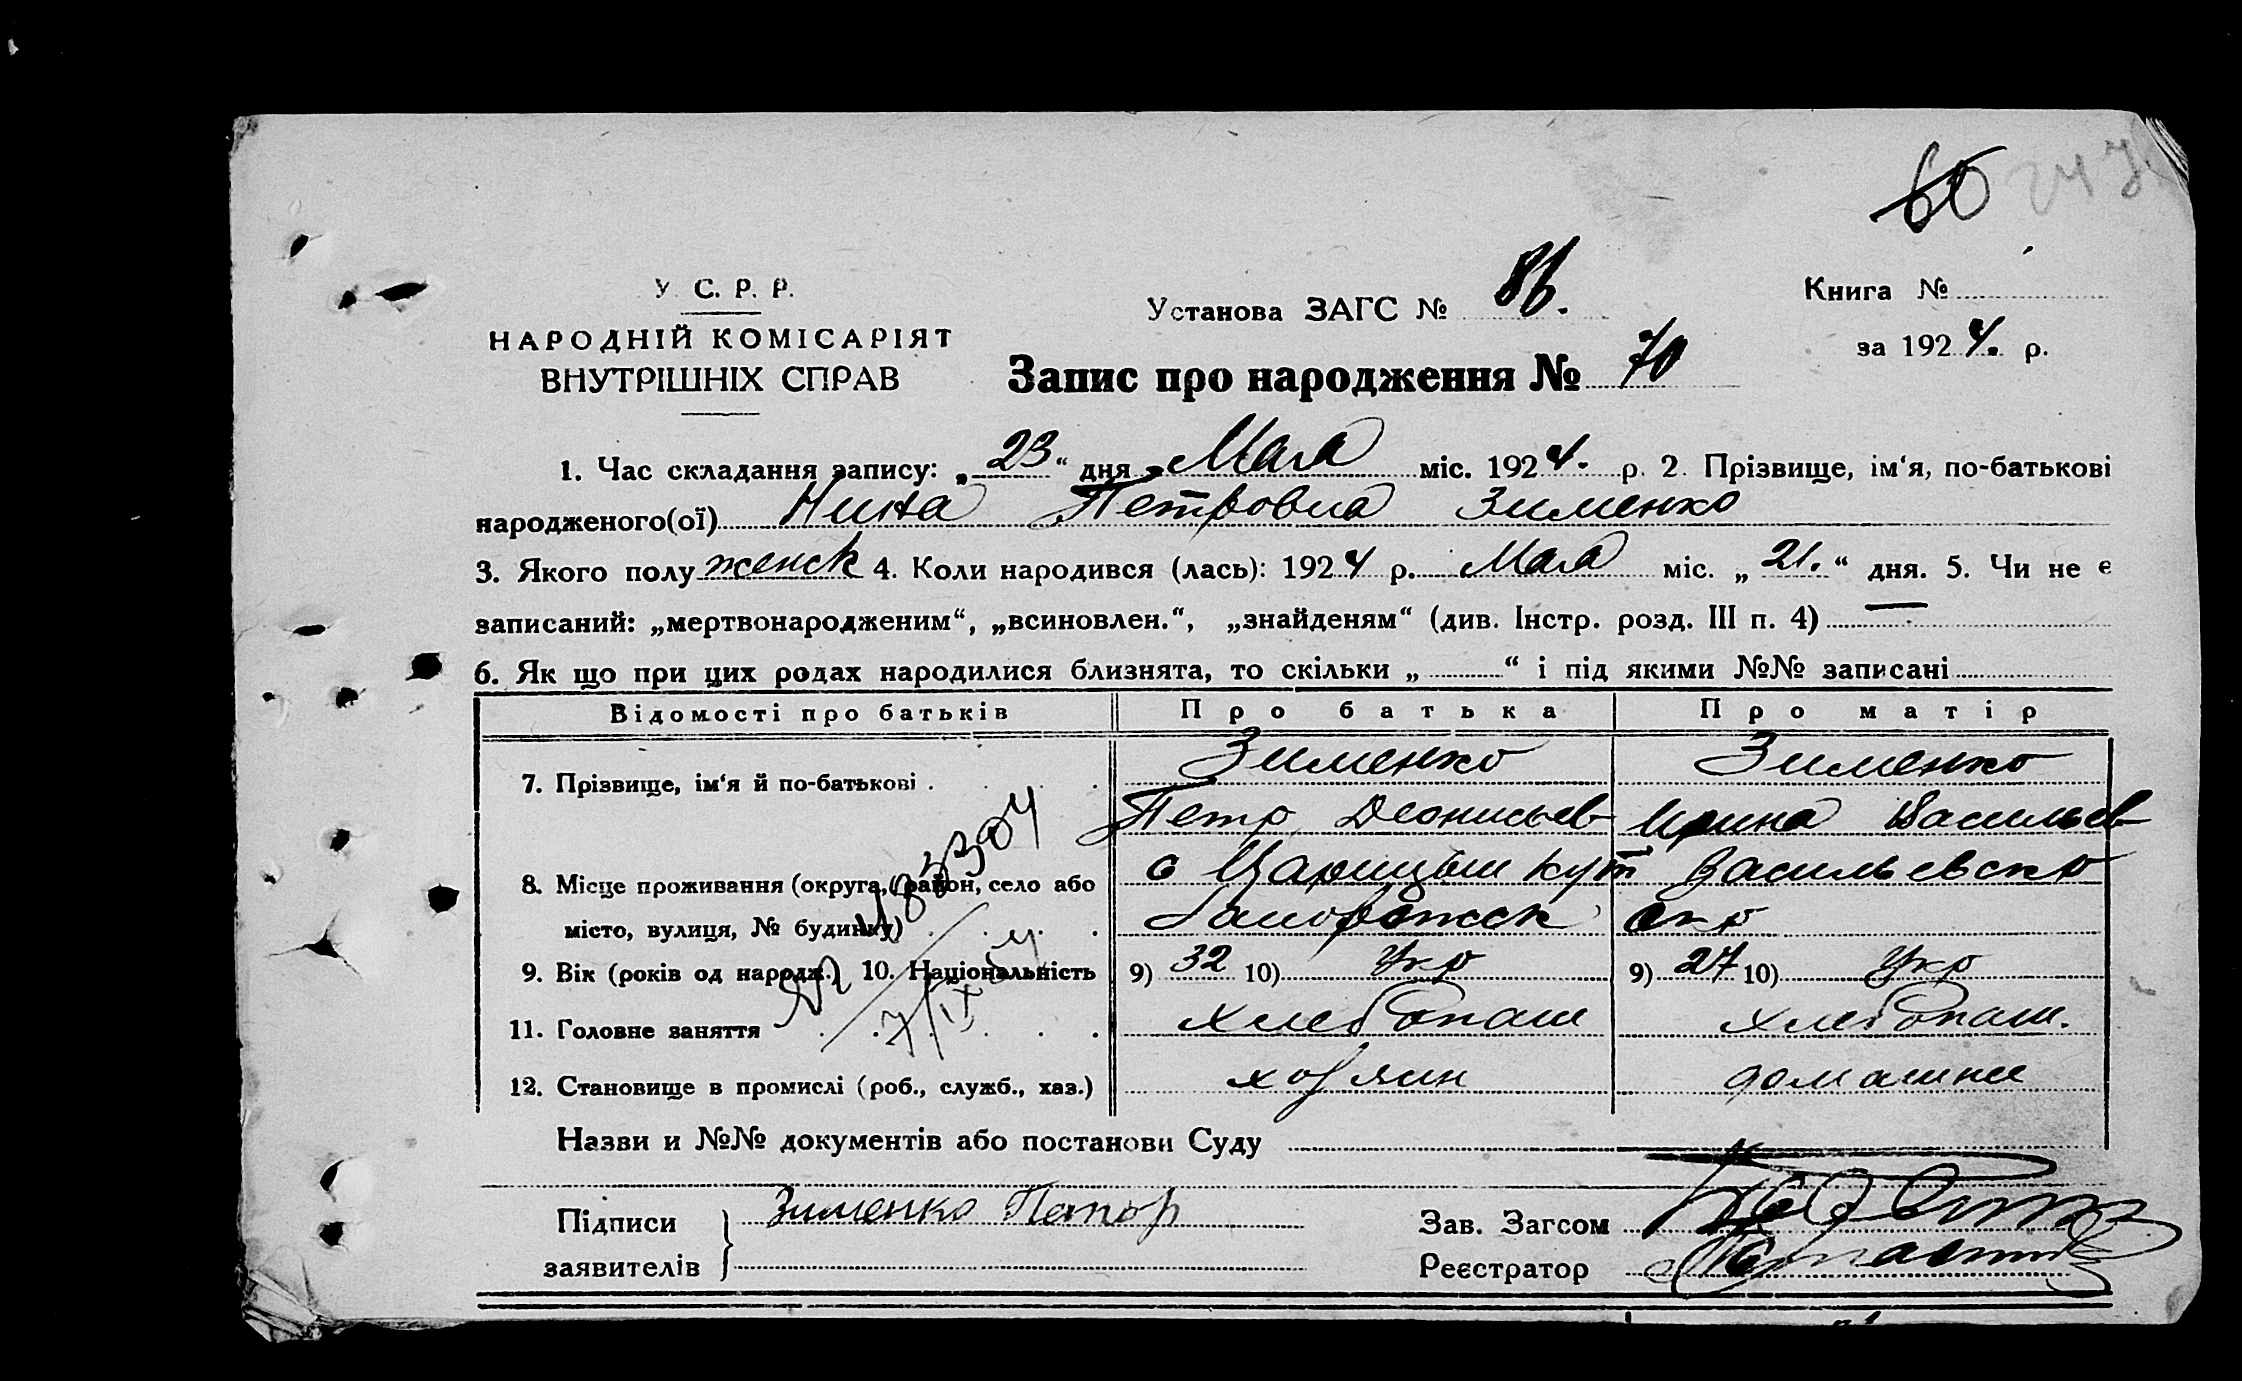 60 247
У. С. Р. Р.
НАРОДНІЙ КОМІСАРІЯТ
ВНУТРІШНІХ СПРАВ
Установа ЗАГС № 86.
Книга №
за 1924. р.
Запис про народження № 70
1. Час складання запису: „23“ дня Мая міс. 1924. р. 2. Прізвище, ім‘я, по-батькові
народженого(ої) Нина Петровна Зименко
3. Якого полу женск 4. Коли народився (лась): 1924 р. Мая міс. „21.“ дня. 5. Чи не є
записаний: „мертвонародженим“, „всиновлен.“, „знайденям“ (див. Інстр. розд. III п. 4) —
6. Як що при цих родах народилися близнята, то скільки „ “ і під якими №№ записані
Відомості про батьків Про батька Про матір
7. Прізвище, ім‘я й по-батькові . Зименко Зименко
Петр Деонисьев Ирина Васильев
8. Місце проживання (округа, район, село або с Царицын Кут Васильевско
місто, вулиця, № будинку) Запорожск окр
9. Вік (років од народж.) 10. Національність 9) 32 10) Укр 9) 27 10) Укр
11. Головне заняття хлебопаш хлебопаш.
12. Становище в промислі (роб., служб., хаз.) хозяин домашней
7/IX
Назви и №№ документів або постанови Суду
Підписи Зименко Петр
заявителів
Зав. Загсом
Реєстратор